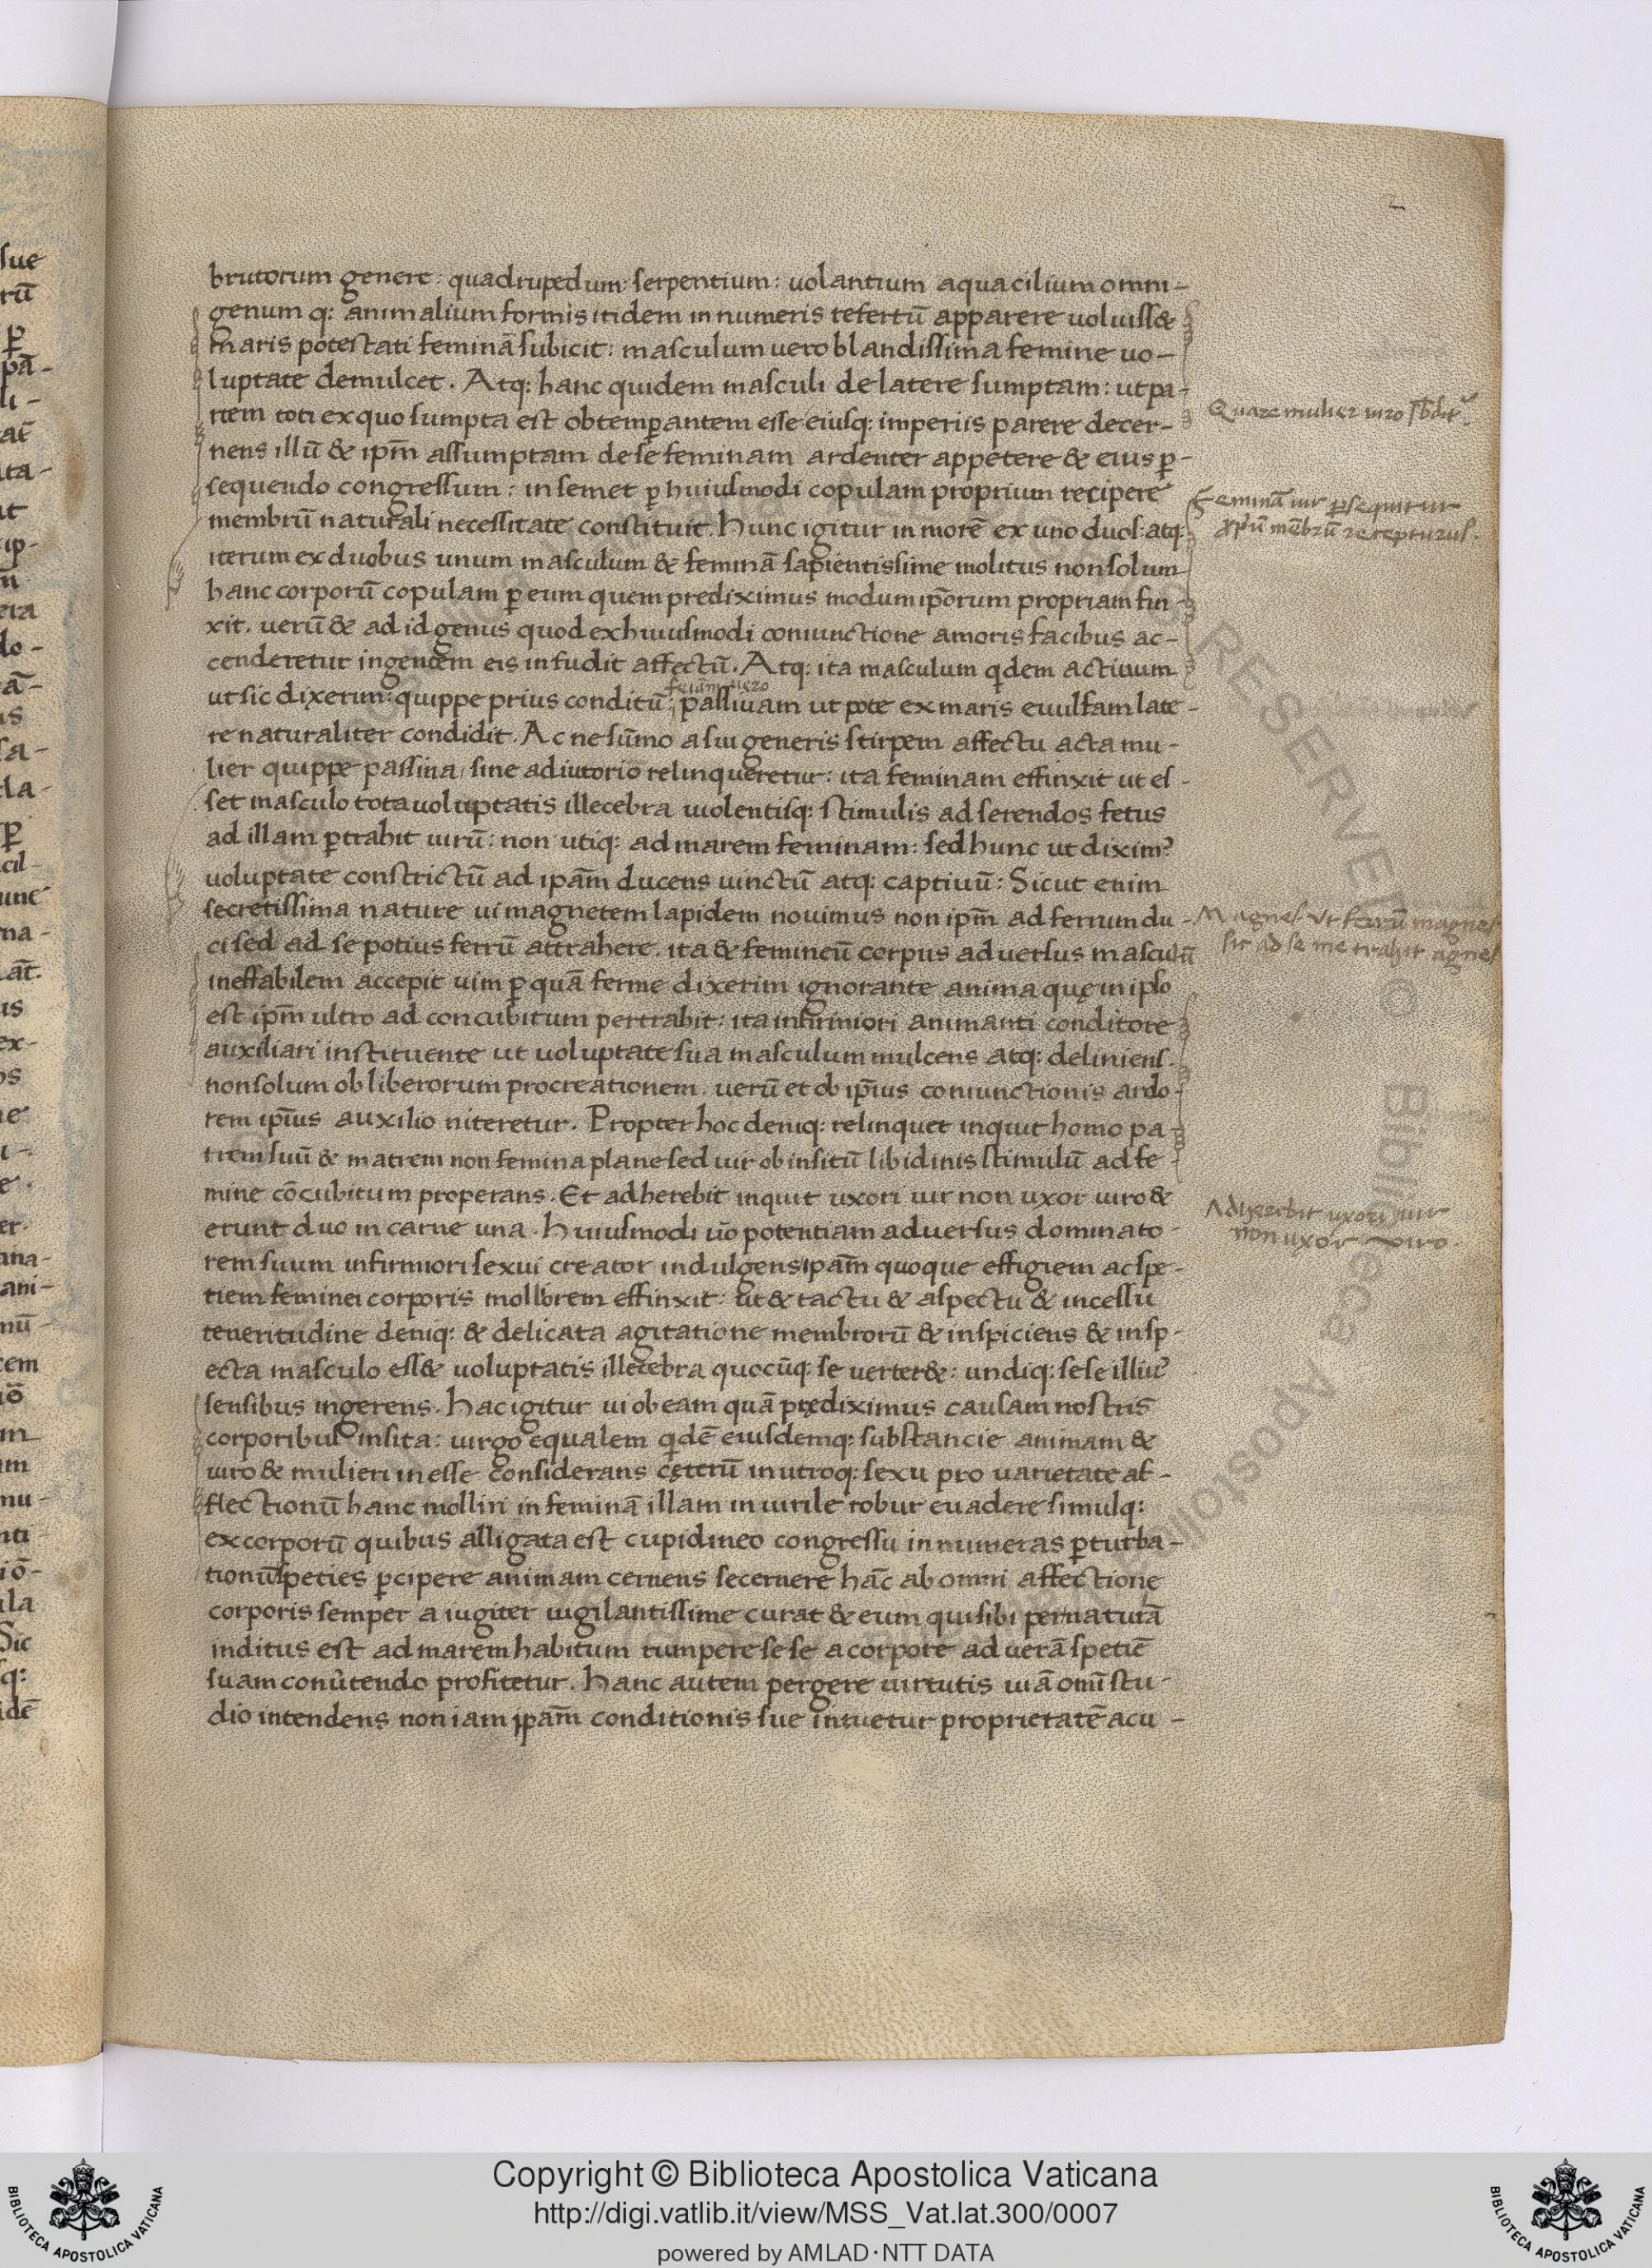 brutorum genere: quadrupedum: serpentium: uolantium aquacilium omni-
genumq: animalium formis itidem innumeris refertū apparere uoluiss&
maris potestati feminā subicit: masculum uero blandissima femine uo-
luptate demulcet. Atq: hanc quidem masculi de latere sumptam: ut pa-
rtem toti ex quo sumpta est obtemꝑantem esse eiusq: imperiis parere decer-
nens illū & ip̄m assumptam de se feminam ardenter appetere & eius ꝑ-
sequendo congressum: in semet ꝑ huiusmodi copulam proprium recipere
membrū naturali necessitate constituit. Hunc igitur in morē ex uno duos: atq:
iterum ex duobus unum masculum & feminā sapientissime molitus non solum
hanc corporū copulam ꝑ eum quem prediximus modum ip̄orum propriam fin-
xit. uerū & ad id genus quod ex huiusmodi coniunctione amoris facibus ac-
cenderetur ingentem eis infudit affectū. Atq: ita masculum qidem actiuum
ut sic dixerim: quippe prius conditū: passiuam ut pote ex maris euulsam late-
re naturaliter condidit. Ac ne sūmo a sui generis stirpem affectu acta mu-
lier quippe passiua, sine adiutorio relinqueretur: ita feminam effinxit ut es-
set masculo tota uoluptatis illecebra uiolentisq: stimulis ad serendos fetus
ad illam ꝑtrahit uirū: non utiq: ad marem feminam: sed hunc ut dixim?
uoluptate constrictū ad ipām ducens uinctū atq: captiuū: Sicut enim
secretissima nature ui magnetem lapidem nouimus non ip̄m ad ferrum du-
ci sed ad se potius ferrū attrahere. ita & femineū corpus aduersus masculū
ineffabilem accepit uim ꝑ quā ferme dixerim ignorante anima quę in ipso
est ip̄m ultro ad concubitum pertrahit: ita infirmiori animanti conditore
auxiliari instituente ut uoluptate sua masculum mulcens atq: deliniens.
non solum ob liberorum procreationem. uerū et ob ip̄ius coniunctionis ardo-
rem ip̄ius auxilio niteretur. Propter hoc deniq: relinquet inquit homo pa-
trem suū & matrem non femina plane sed uir ob insitū libidinis stimulū ad fe-
mine cōcubitum properans. Et adherebit inquit uxori uir non uxor uiro &
erunt duo in carne una. Huiusmodi ūo potentiam aduersus dominato-
rem suum infirmiori sexui creator indulgens ipām quoque effigiem ac spe-
tiem feminei corporis molliorem effinxit: ut & tactu & aspectu & incessu
teneritudine deniq: & delicata agitatione membrorū & inspiciens & insp-
ecta masculo ess& uoluptatis illecebra quocūq: se uerter&: undiq: sese illiu?
sensibus ingerens. Hac igitur ui ob eam quā pręediximus causam nostris
corporibus insita: uirgo equalem qidē eiusdemq: substancie animam &
uiro & mulieri inesse considerans cęterū in utroq: sexu pro uarietate af-
flectionū hanc molliri in feminā illam in uirile robur euadere simulq:
ex corporū quibus alligata est cupidineo congressu innumeras ꝑturba-
tionū speties ꝑcipere animam cernens secernere hāc ab omni affectione
corporis semper a iugiter uigilantissime curat & eum qui sibi per naturā
inditus est ad marem habitum rumpere sese a corpore ad uerā spetiē
suam conitendo profitetur. Hanc autem pergere uirtutis uiā omī stu-
dio intendens non iam ipām conditionis sue intuetur proprietatē acu-
Quare mulier uiro
Feminā uir ꝑsequitur
membrū recepturus.
Magnes. Ut ferrū magnes
sic ad se me trahit agnes
Adhęrebit uxori uir
non uxor uiro.
Copyright © Biblioteca Apostolica Vaticana
http://digi.vatlib.it/view/MSS_Vat.lat.300/0007
powered by AMLAD·NTT DATA
BIBLIOTECA APOSTOLICA VATICANA
BIBLIOTECA APOSTOLICA VATICANA